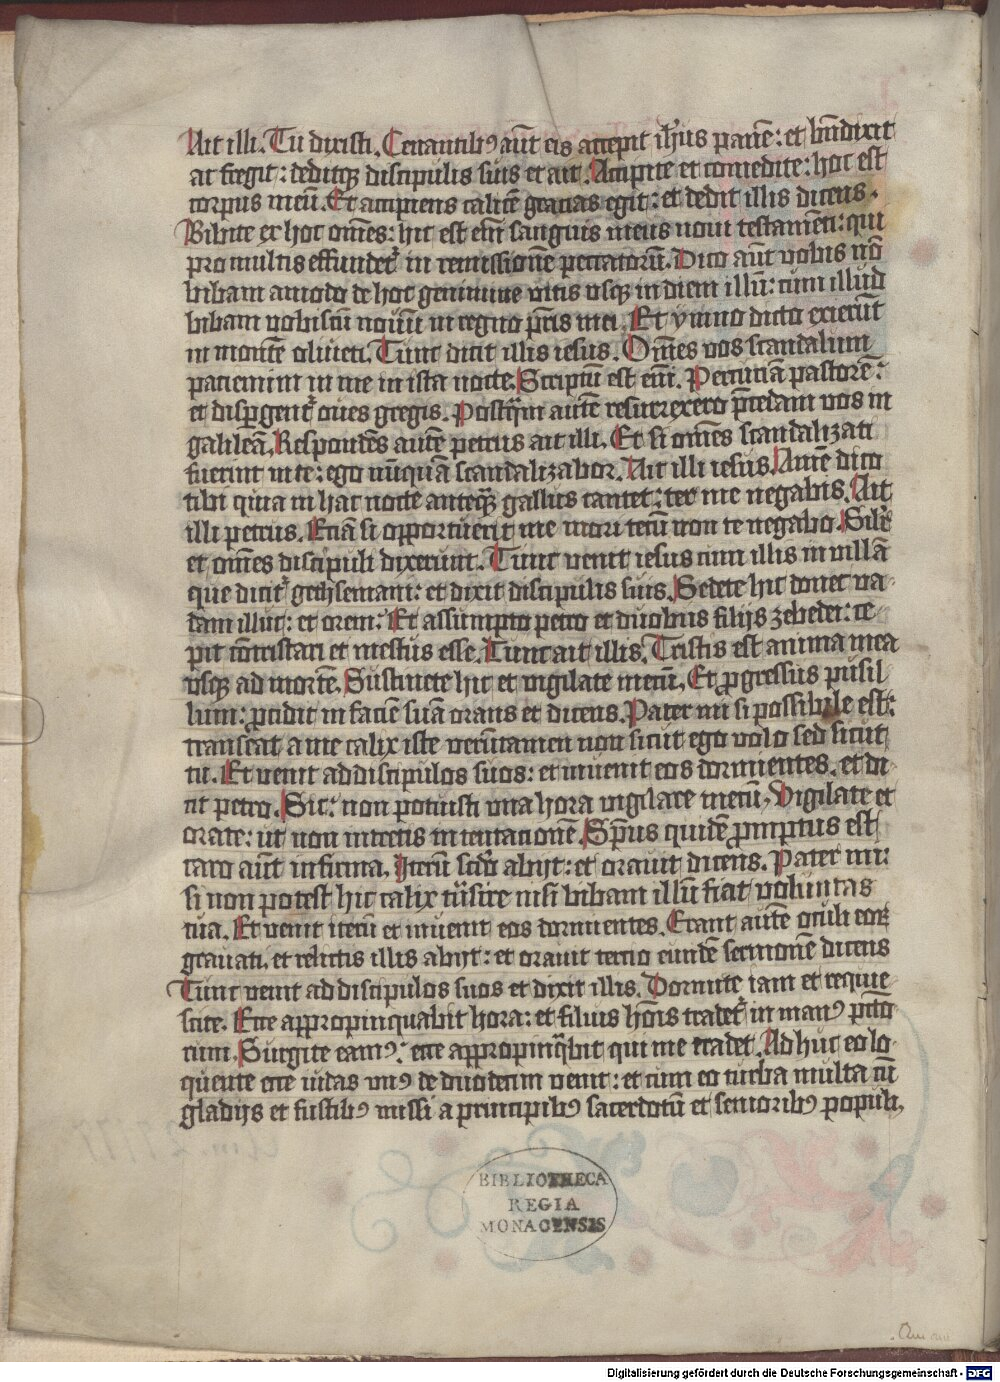 Ait illi. Tu dixisti. Cenantib9 aūt eis accepit ih̄us panē: et bn̄dixit
ac fregit: deditqꝫ discipulis suis et ait. Accipite et comedite: hoc est
corpus meū. Et accipiens calicē gracias egit: et dedit illis dicens.
Bibite ex hoc om̄es: hic est em̄ sanguis meus noui testamēti: qui
pro multis effundet᷑ in remissionē peccatorū. Dico aūt vobis nō
bibam amodo de hoc genimine vitis vsqꝫ in diem illū: cum illud
bibam vobiscū nouū in regno pr̄is mei. Et ymno dicto exierūt
in montē oliueti. Tunc dicit illis iesus. Om̄es vos scandalum
paciemini in me in ista nocte. Scriptū est em̄. Percuciā pastorē:
et disꝑgent᷑ oues gregis. Postq̄m autē resurrexero p̄cedam vos in
galileā. Respondēs autē petrus ait illi. Et si om̄es scandalizati
fuerint in te: ego nūquā scandalizabor. Ait illi iesus. Amē dico
tibi quia in hac nocte anteqꝫ gallus cantet: ter me negabis. Ait
illi petrus. Eciā si opportuerit me mori tecū non te negabo. Silr̄
et om̄es discipuli dixerunt. Tunc venit iesus cum illis in villā
que dicit᷑ gethsemani: et dixit discipulis suis. Sedete hic donec va-
dam illuc: et orem: Et assumpto petro et duobus filijs zebedei: ce-
pit cōtristari et mestus esse. Tunc ait illis. Tristis est anima mea
vsqꝫ ad mortē. Sustinete hic et vigilate mecū. Et ꝓgressus pusil-
lum: ꝓcidit in faciē suā orans et dicens. Pater mi si possibile est:
transeat a me calix iste verūtamen non sicut ego volo sed sicut
tu. Et venit ad discipulos suos: et inuenit eos dormientes. et di-
cit petro. Sic: non potuisti vna hora vigilare mecū, Vigilate et
orate: ut non intretis in temtacionē. Sp̄us quidē ꝓmptus est
caro aūt infirma. Iterū scd̄o abijt: et orauit dicens. Pater mi:
si non potest hic calix tn̄sire nisi bibam illū fiat voluntas
tua. Et venit iterū et inuenit eos dormientes. Erant autē oculi eoꝝ
grauati. et relictis illis abijt: et orauit tercio eundē sermonē dicens
Tunc venit ad discipulos suos et dixit illis. Dormite iam et requie-
scite. Ecce appropinquabit hora: et filius hōis tradet᷑ in man9 pctō-
rum. Surgite eam9: ecce appropinq̄bit qui me tradet. Ad huc eo lo-
quente ecce iudas vn9 de duodecim venit: et cum eo turba multa cū
gladijs et fustib9 missi a principib9 sacerdotū et seniorib9 populi.
BIBLIOTHECA
REGIA
MONACENSIS
Digitalisierung gefördert durch die Deutsche Forschungsgemeinschaft - DFG